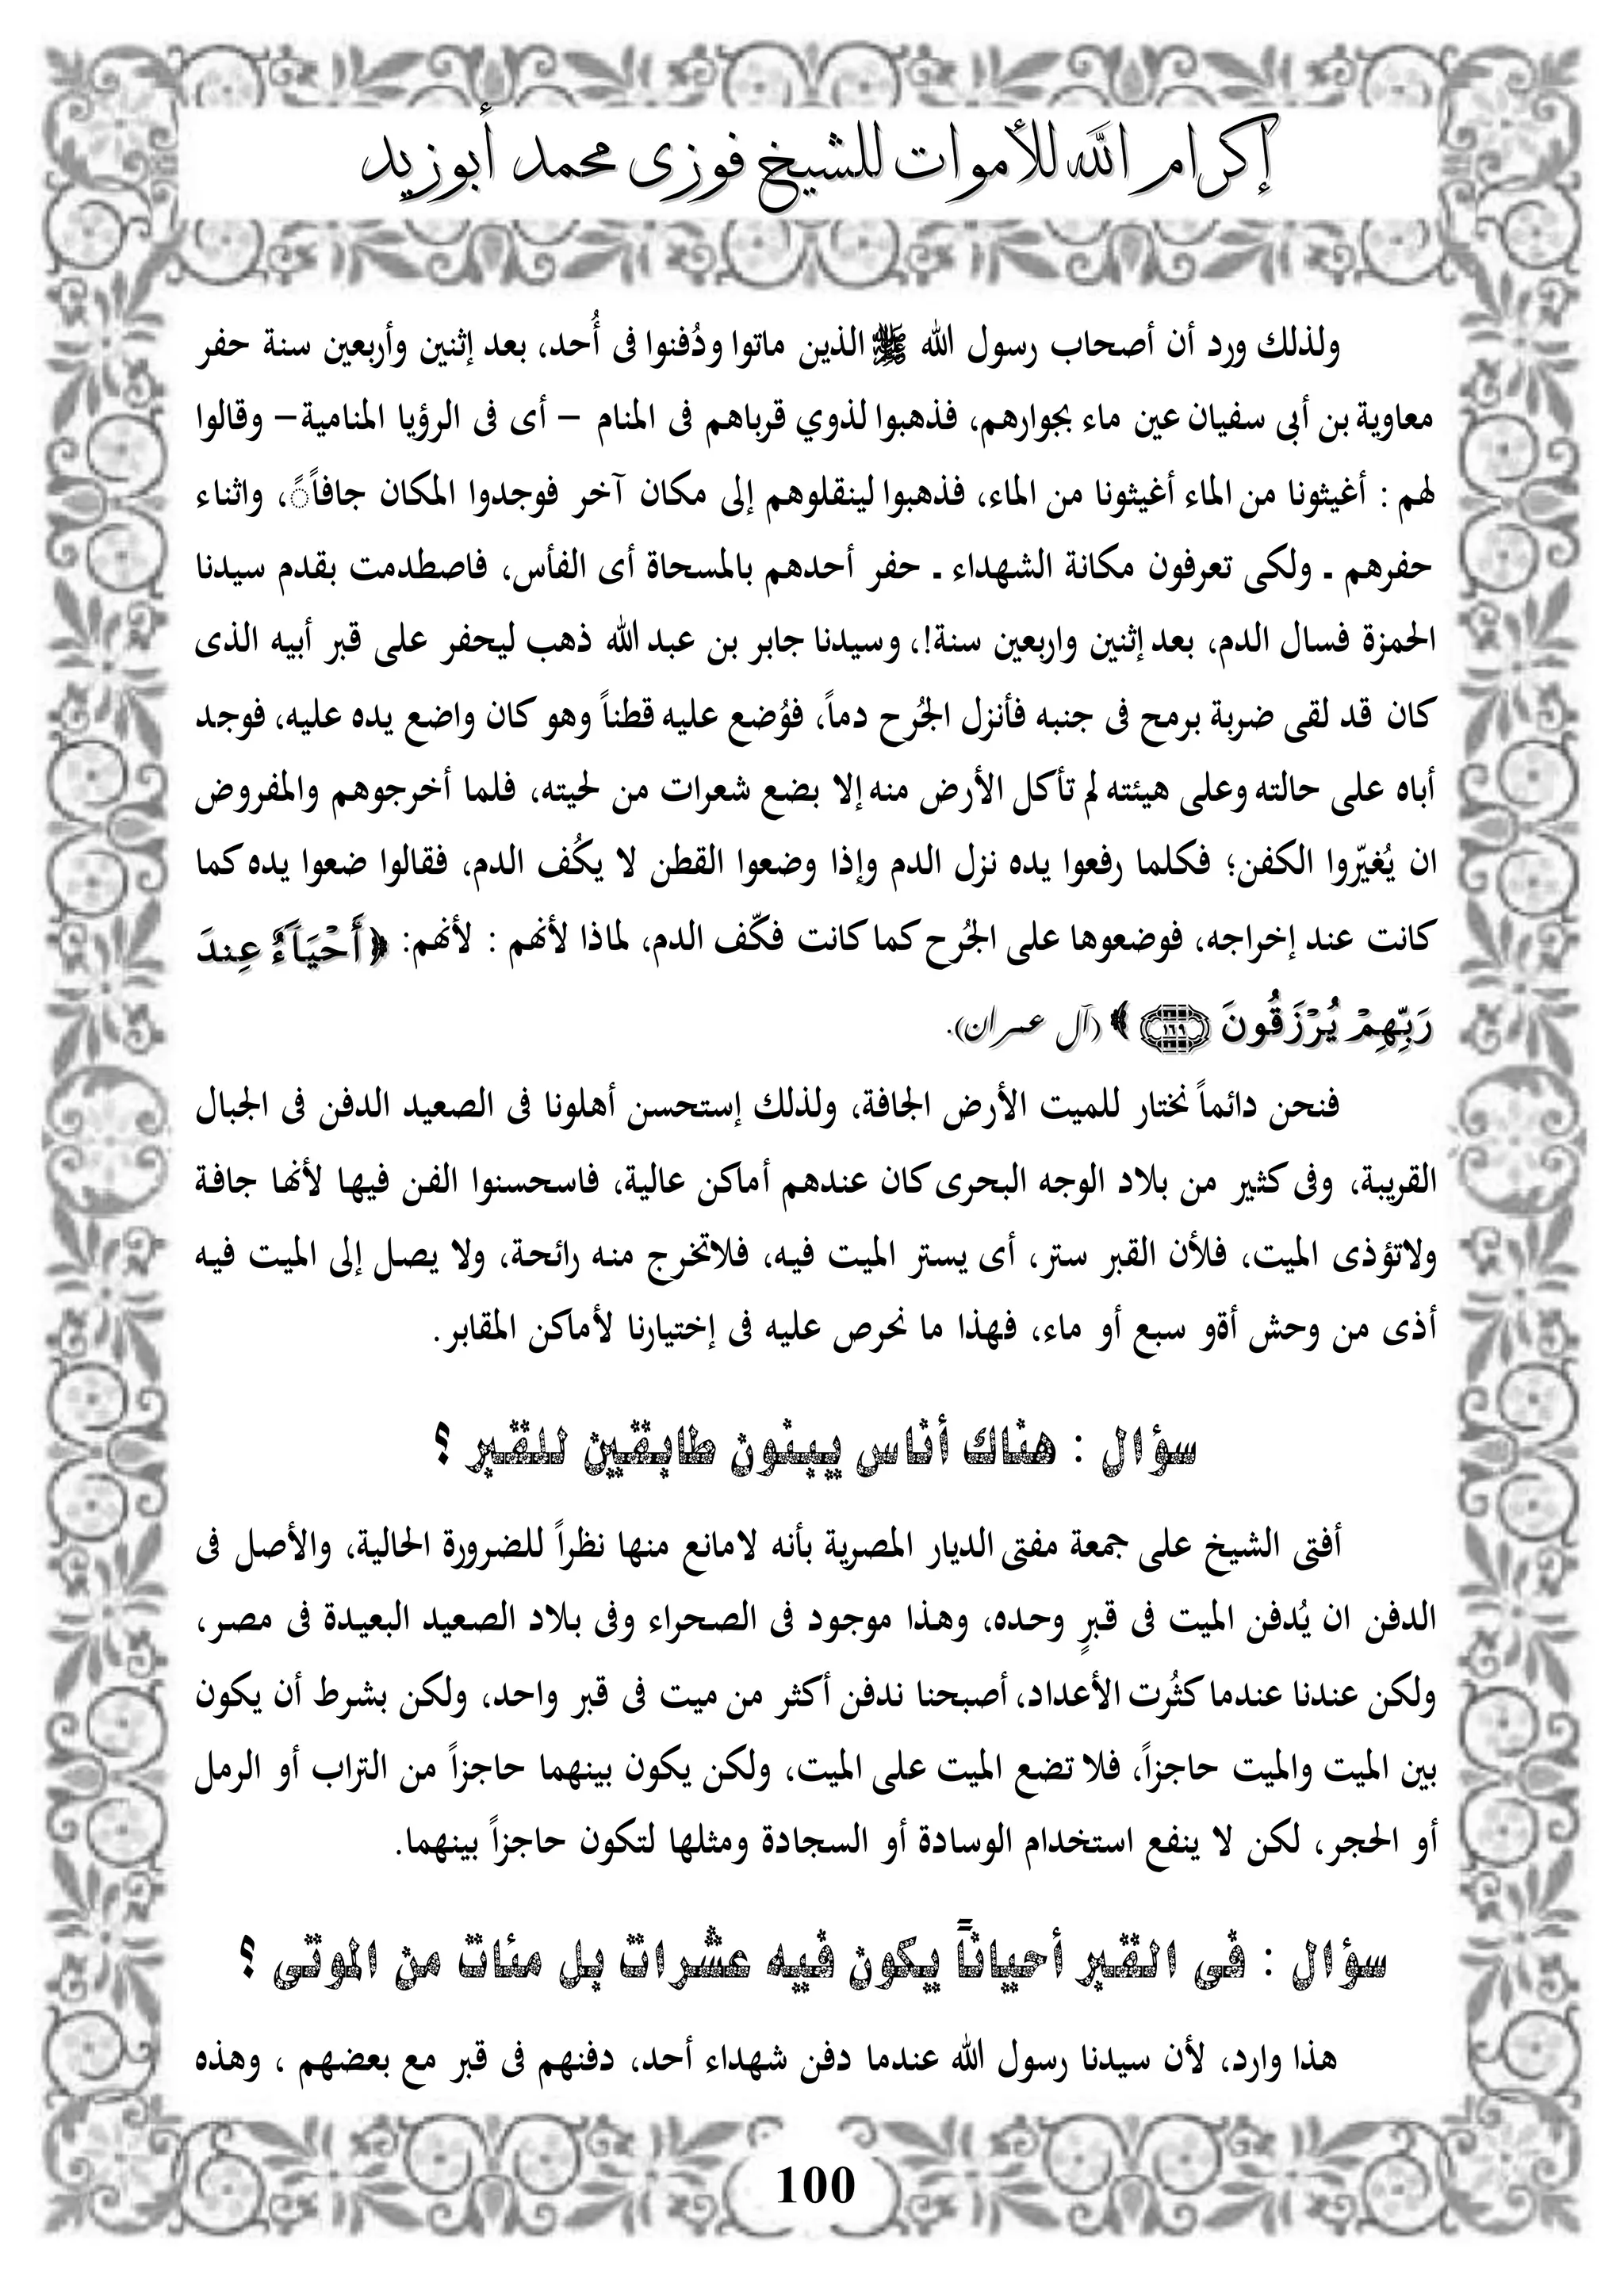 إكرام الله للأموات للشيخ فوزى محمد أبوزيد
ولذلك ورد أن أصحاب رسول الله ﷺ الذين ماتوا ودُفنوا فى أُحد، بعد إثنين وأربعين سنة حفر
معاوية بن أبى سفيان عين ماء بجوارهم، فذهبوا لذوي قرباهم فى المنام – أى فى الرؤيا المنامية– وقالوا
لهم : أغيثونا من الماء أغيثونا من الماء، فذهبوا لينقلوهم إلى مكان آخر فوجدوا المكان جافاً ً، واثناء
حفرهم ـ ولكى تعرفون مكانة الشهداء ـ حفر أحدهم بالمسحاة أى الفأس، فاصطدمت بقدم سيدنا
الحمزة فسال الدم، بعد إثنين واربعين سنة!، وسيدنا جابر بن عبد الله ذهب ليحفر على قبر أبيه الذى
كان قد لقى ضربة برمح فى جنبه فأنزل الجُرح دماً، فوُضع عليه قطناً وهو كان واضع يده عليه، فوجد
أباه على حالته وعلى هيئته لم تأكل الأرض منه إلا بضع شعرات من لحيته، فلما أخرجوهم والمفروض
ان يُغيّروا الكفن؛ فكلما رفعوا يده نزل الدم وإذا وضعوا القطن لا يكُف الدم، فقالوا ضعوا يده كما
كانت عند إخراجه، فوضعوها على الجُرح كما كانت فكّف الدم، لماذا لأنهم : لأنهم: ﴿ أَحْيَآءٌ عِندَ
رَبِّهِمْ يُرْزَقُونَ ١٦٩ ﴾ (آل عمران).
فنحن دائماً نختار للميت الأرض الجافة، ولذلك إستحسن أهلونا فى الصعيد الدفن فى الجبال
القريبة، وفى كثير من بلاد الوجه البحرى كان عندهم أماكن عالية، فاسحسنوا الفن فيها لأنها جافة
ولاتؤذى الميت، فلأن القبر ستر، أى يستر الميت فيه، فلاتخرج منه رائحة، ولا يصل إلى الميت فيه
أذى من وحش أةو سبع أو ماء، فهذا ما نحرص عليه فى إختيارنا لأماكن المقابر.
سؤال : هناك أناس يبنون طابقين للقبر ؟
أفتى الشيخ على جمعة مفتى الديار المصرية بأنه لامانع منها نظراً للضرورة الحالية، والأصل فى
الدفن ان يُدفن الميت فى قبرٍ وحده، وهذا موجود فى الصحراء وفى بلاد الصعيد البعيدة فى مصر،
ولكن عندنا عندما كثُرت الأعداد، أصبحنا ندفن أكثر من ميت فى قبر واحد، ولكن بشرط أن يكون
بين الميت والميت حاجزاً، فلا تضع الميت على الميت، ولكن يكون بينهما حاجزاً من التراب أو الرمل
أو الحجر، لكن لا ينفع استخدام الوسادة أو السجادة ومثلها لتكون حاجزاً بينهما.
سؤال : فى القبر أحياناً يكون فيه عشرات بل مئات من الموتى ؟
هذا وارد، لأن سيدنا رسول الله عندما دفن شهداء أحد، دفنهم فى قبر مع بعضهم ، وهذه
100